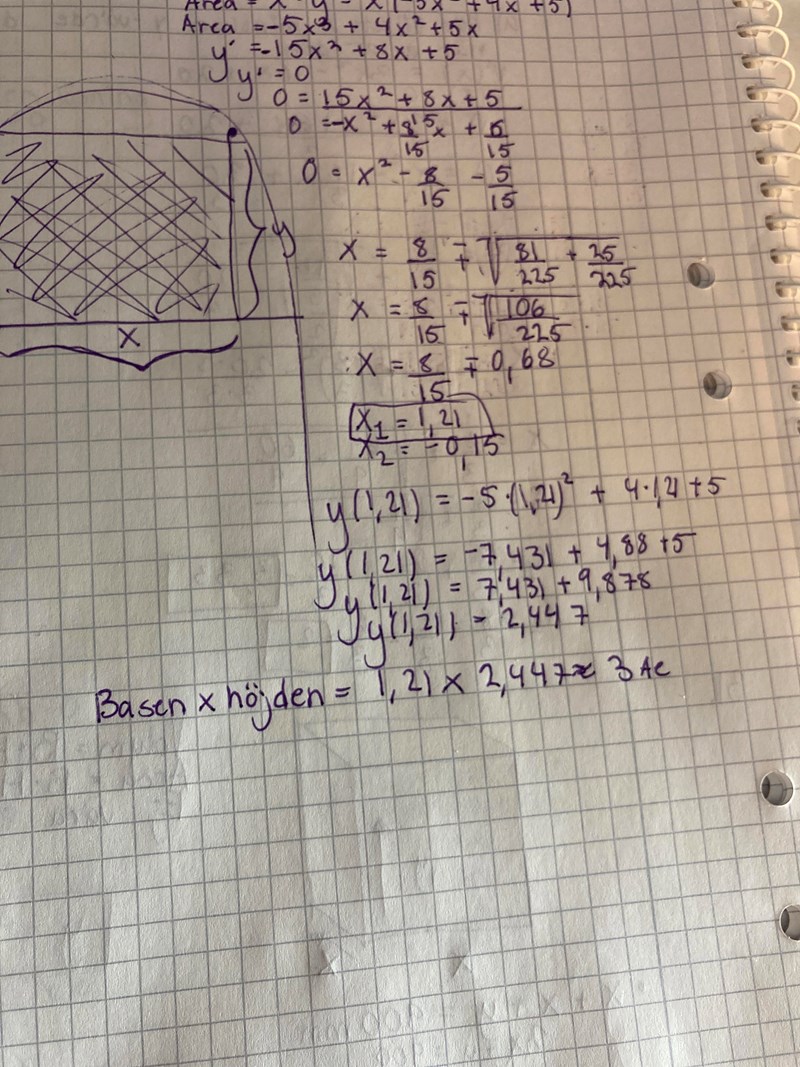 Area = x · y = x(-5x² + 4x + 5)
Area = -5x³ + 4x² + 5x
y' = -15x² + 8x + 5
y' = 0
0 = 15x² + 8x + 5
0 = -x² + 8/15 x + 5/15
0 = x² - 8/15 - 5/15
x = 8/15 ∓ √(81/225 + 25/225)
x = 8/15 ∓ √(106/225)
x = 8/15 ∓ 0,68
x₁ = 1,21
x₂ = -0,15
y
x
y(1,21) = -5·(1,21)² + 4·1,21 + 5
y(1,21) = -7,431 + 4,88 + 5
y(1,21) = 7,431 + 9,878
y(1,21) = 2,447
Basen x höjden = 1,21 x 2,447 ≈ 3 Ae